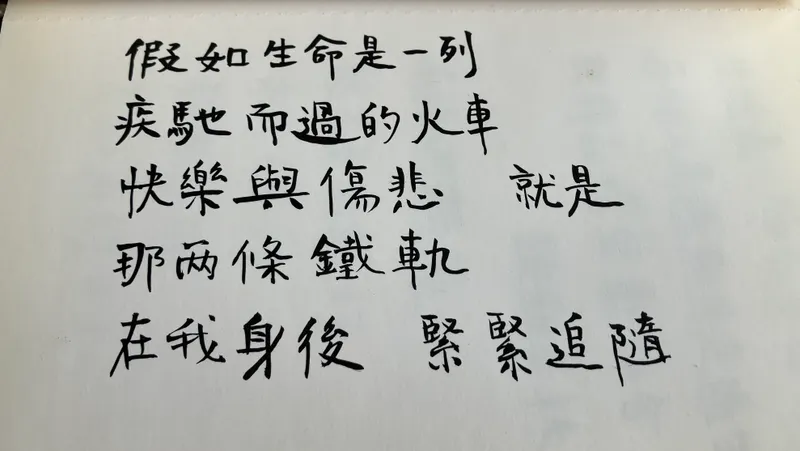 假如生命是一列
疾馳而過的火車
快樂與傷悲 就是
那两條鐵軌
在我身後 緊緊追隨